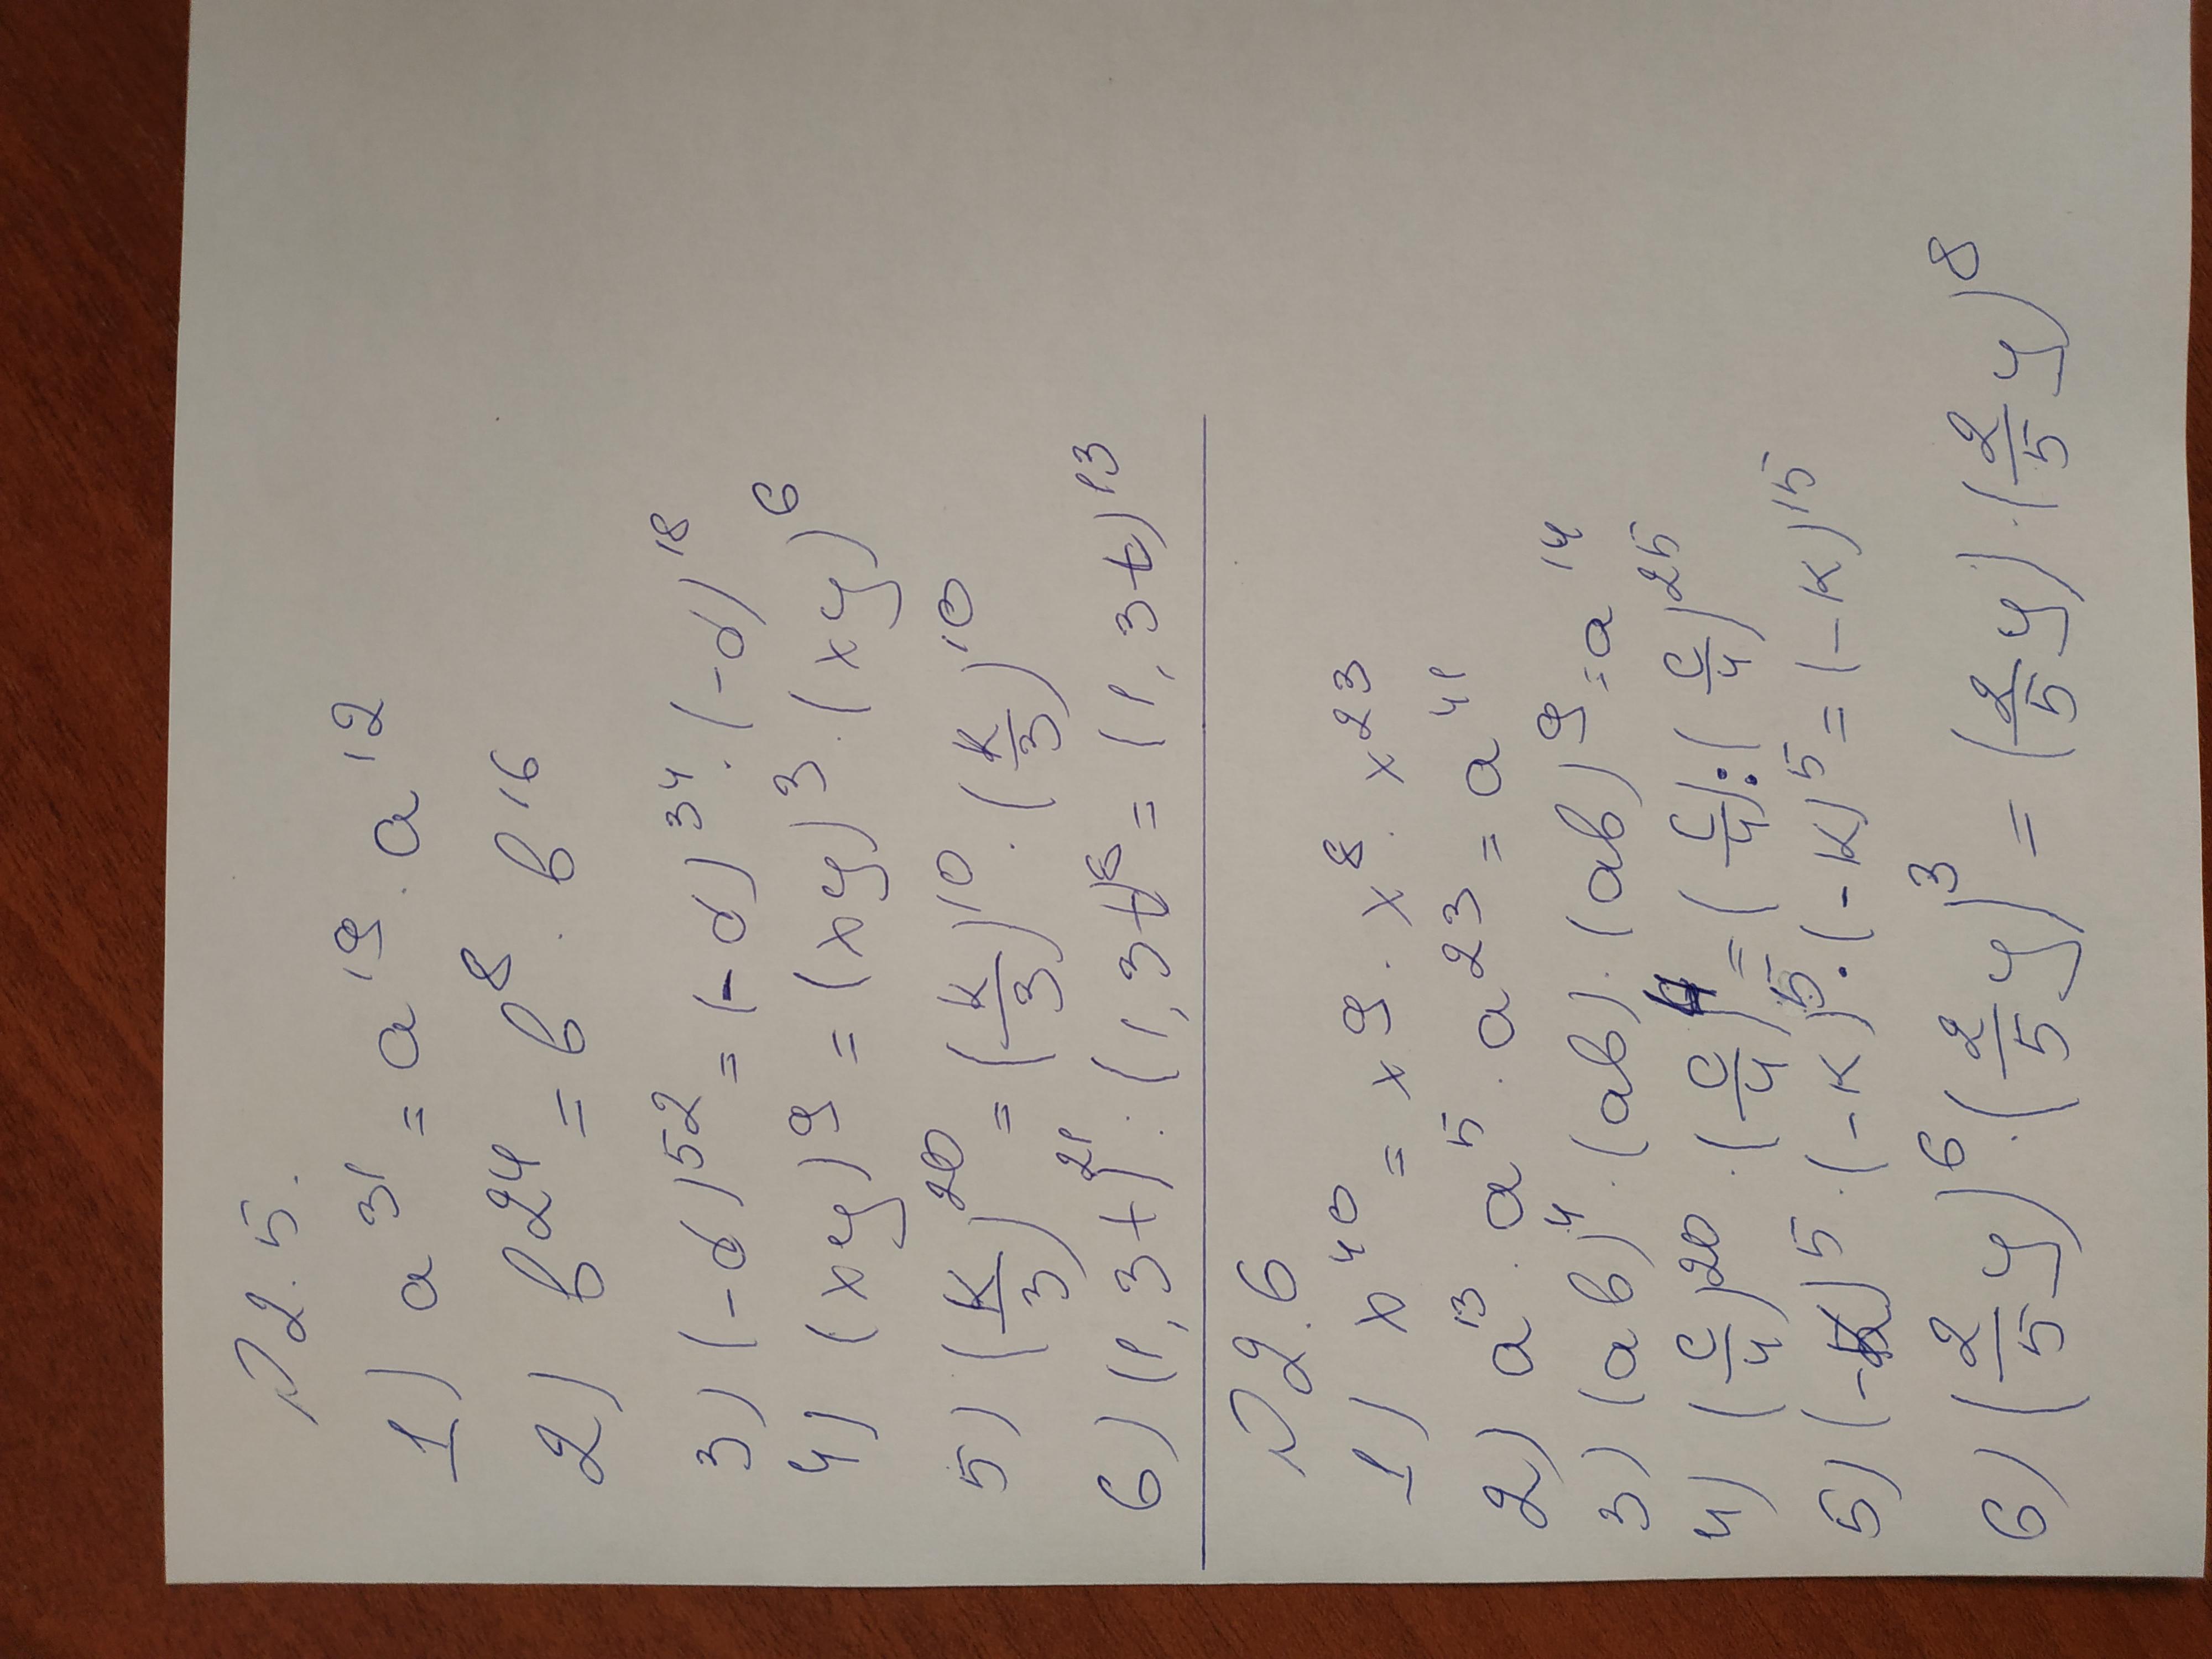 №2.5.
1) a³¹ = a¹⁹ · a¹²
2) b²⁴ = b⁸ · b¹⁶
3) (-d)⁵² = (-d)³⁴ · (-d)¹⁸
4) (xy)⁹ = (xy)³ · (xy)⁶
5) (k/3)²⁰ = (k/3)¹⁰ · (k/3)¹⁰
6) (1,3t)²¹ : (1,3t)⁸ = (1,3t)¹³
№2.6
1) x⁴⁰ = x⁹ · x⁸ · x²³
2) a¹³ · a⁵ · a²³ = a⁴¹
3) (ab)⁴ · (ab) · (ab)⁹ = a¹⁴
4) (c/4)²⁰ · (c/4)⁴ = (c/4) : (c/4)²⁵
5) (-k)⁵ · (-k)⁵ · (-k)⁵ = (-k)¹⁵
6) (2/5 y)⁶ · (2/5 y)³ = (2/5 y) · (2/5 y)⁸